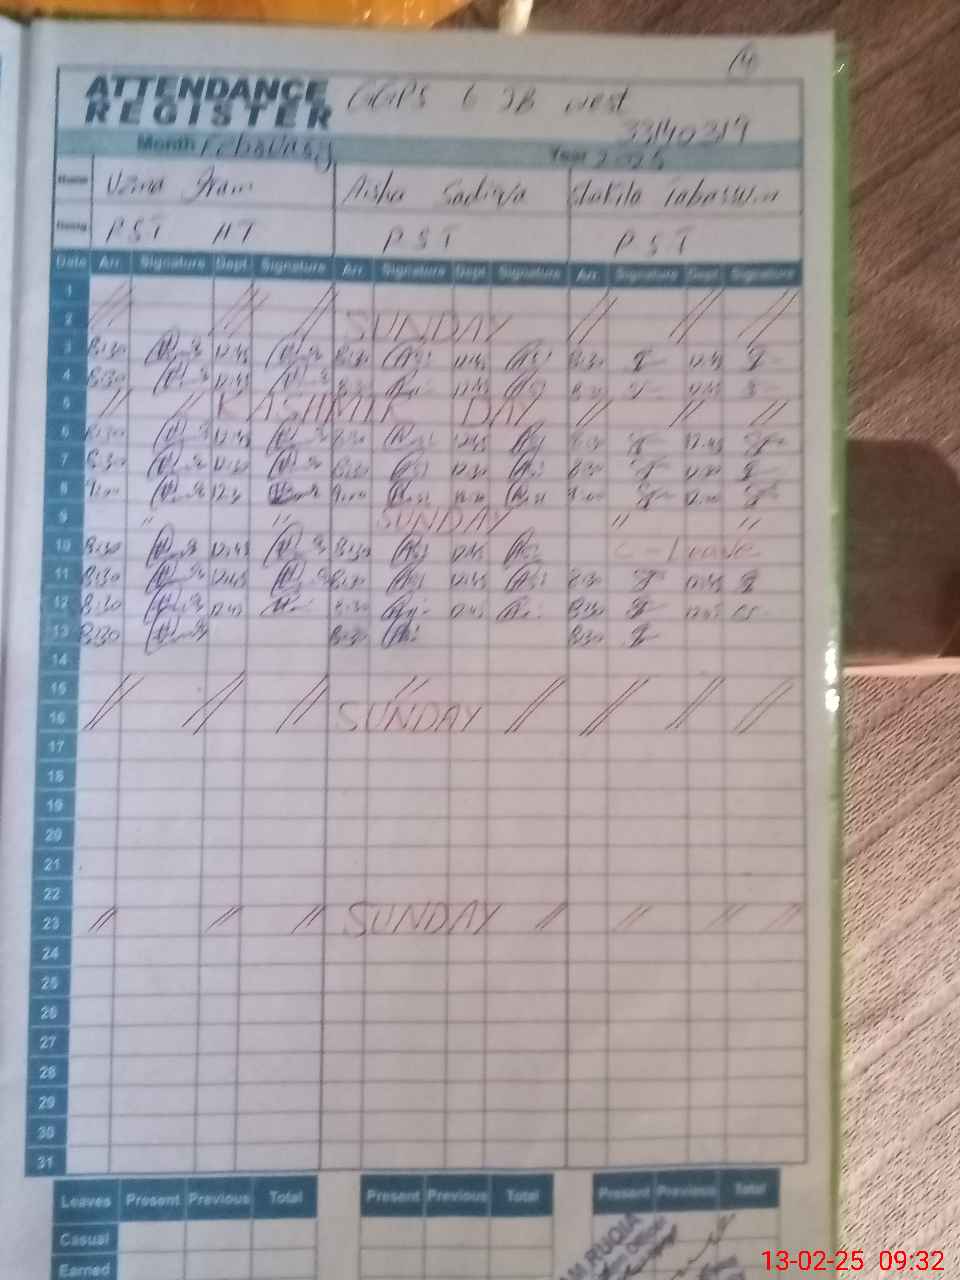 ATTENDANCE GGPS 6 JB West
REGISTER 33140319
Month February Year 2025
Name Uzma Iram Aisha Sadiqa Shakila Tabassum
Desig PST HT PST PST
Date Arr. Signature Dept. Signature Arr. Signature Dept. Signature Arr. Signature Dept. Signature
1
2 SUNDAY
3 8:30 12:45 8:30 12:45 8:30 12:45
4 8:30 12:45 8:30 12:45 8:30 12:45
5 KASHMIR DAY
6 8:30 12:45 8:30 12:45 8:30 12:45
7 8:30 12:30 8:30 12:30 8:30
8 9:00 9:00 9:00
9 " " SUNDAY " "
10 8:30 12:45 8:30 12:45 C-Leave
11 8:30 12:45 8:30 12:45 8:30 12:45
12 8:30 12:45 8:30 12:45 8:30 12:45
13 8:30 8:30 8:30
14
15
16 SUNDAY
17
18
19
20
21
22
23 SUNDAY
24
25
26
27
28
29
30
31
Leaves Present Previous Total Present Previous Total Present Previous Total
Casual
Earned
RUQIA
13-02-25 09:32